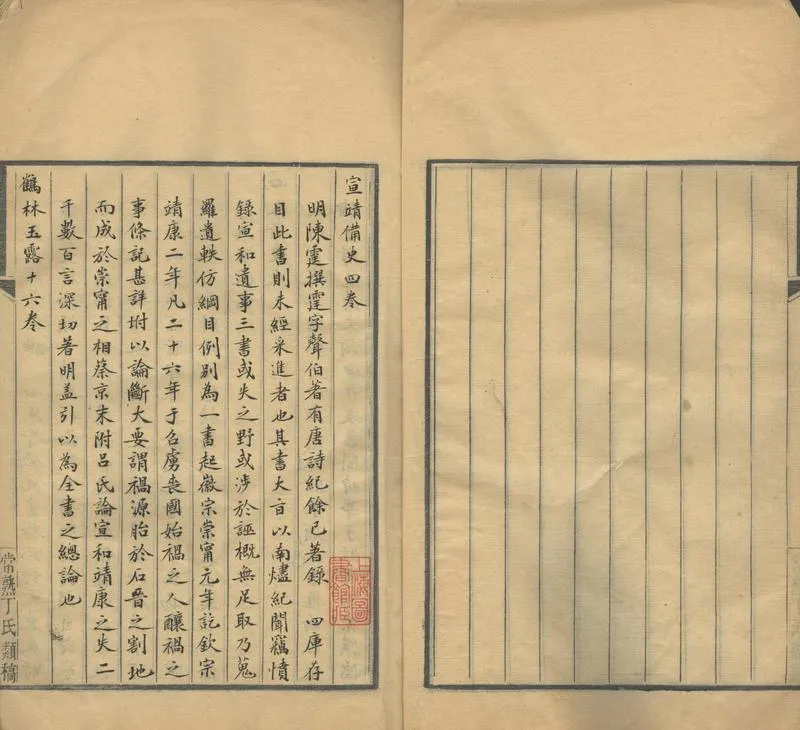 宣靖備史四卷
明陳霆撰霆字聲伯著有唐詩紀餘已著錄　四庫存
目此書則未經采進者也其書大旨以南燼紀聞竊憤
錄宣和遺事三書或失之野或涉於誣概無足取乃蒐
羅遺軼仿綱目例別為一書起徽宗崇甯元年訖欽宗
靖康二年凡二十六年于召虜喪國始禍之人釀禍之
事條記甚詳坿以論斷大要謂禍源胎於石晉之割地
而成於崇甯之相蔡京末附呂氏論宣和靖康之失二
千數百言深切著明盖引以為全書之總論也
鶴林玉露十六卷
常熟丁氏類稿
上海圖
書館藏